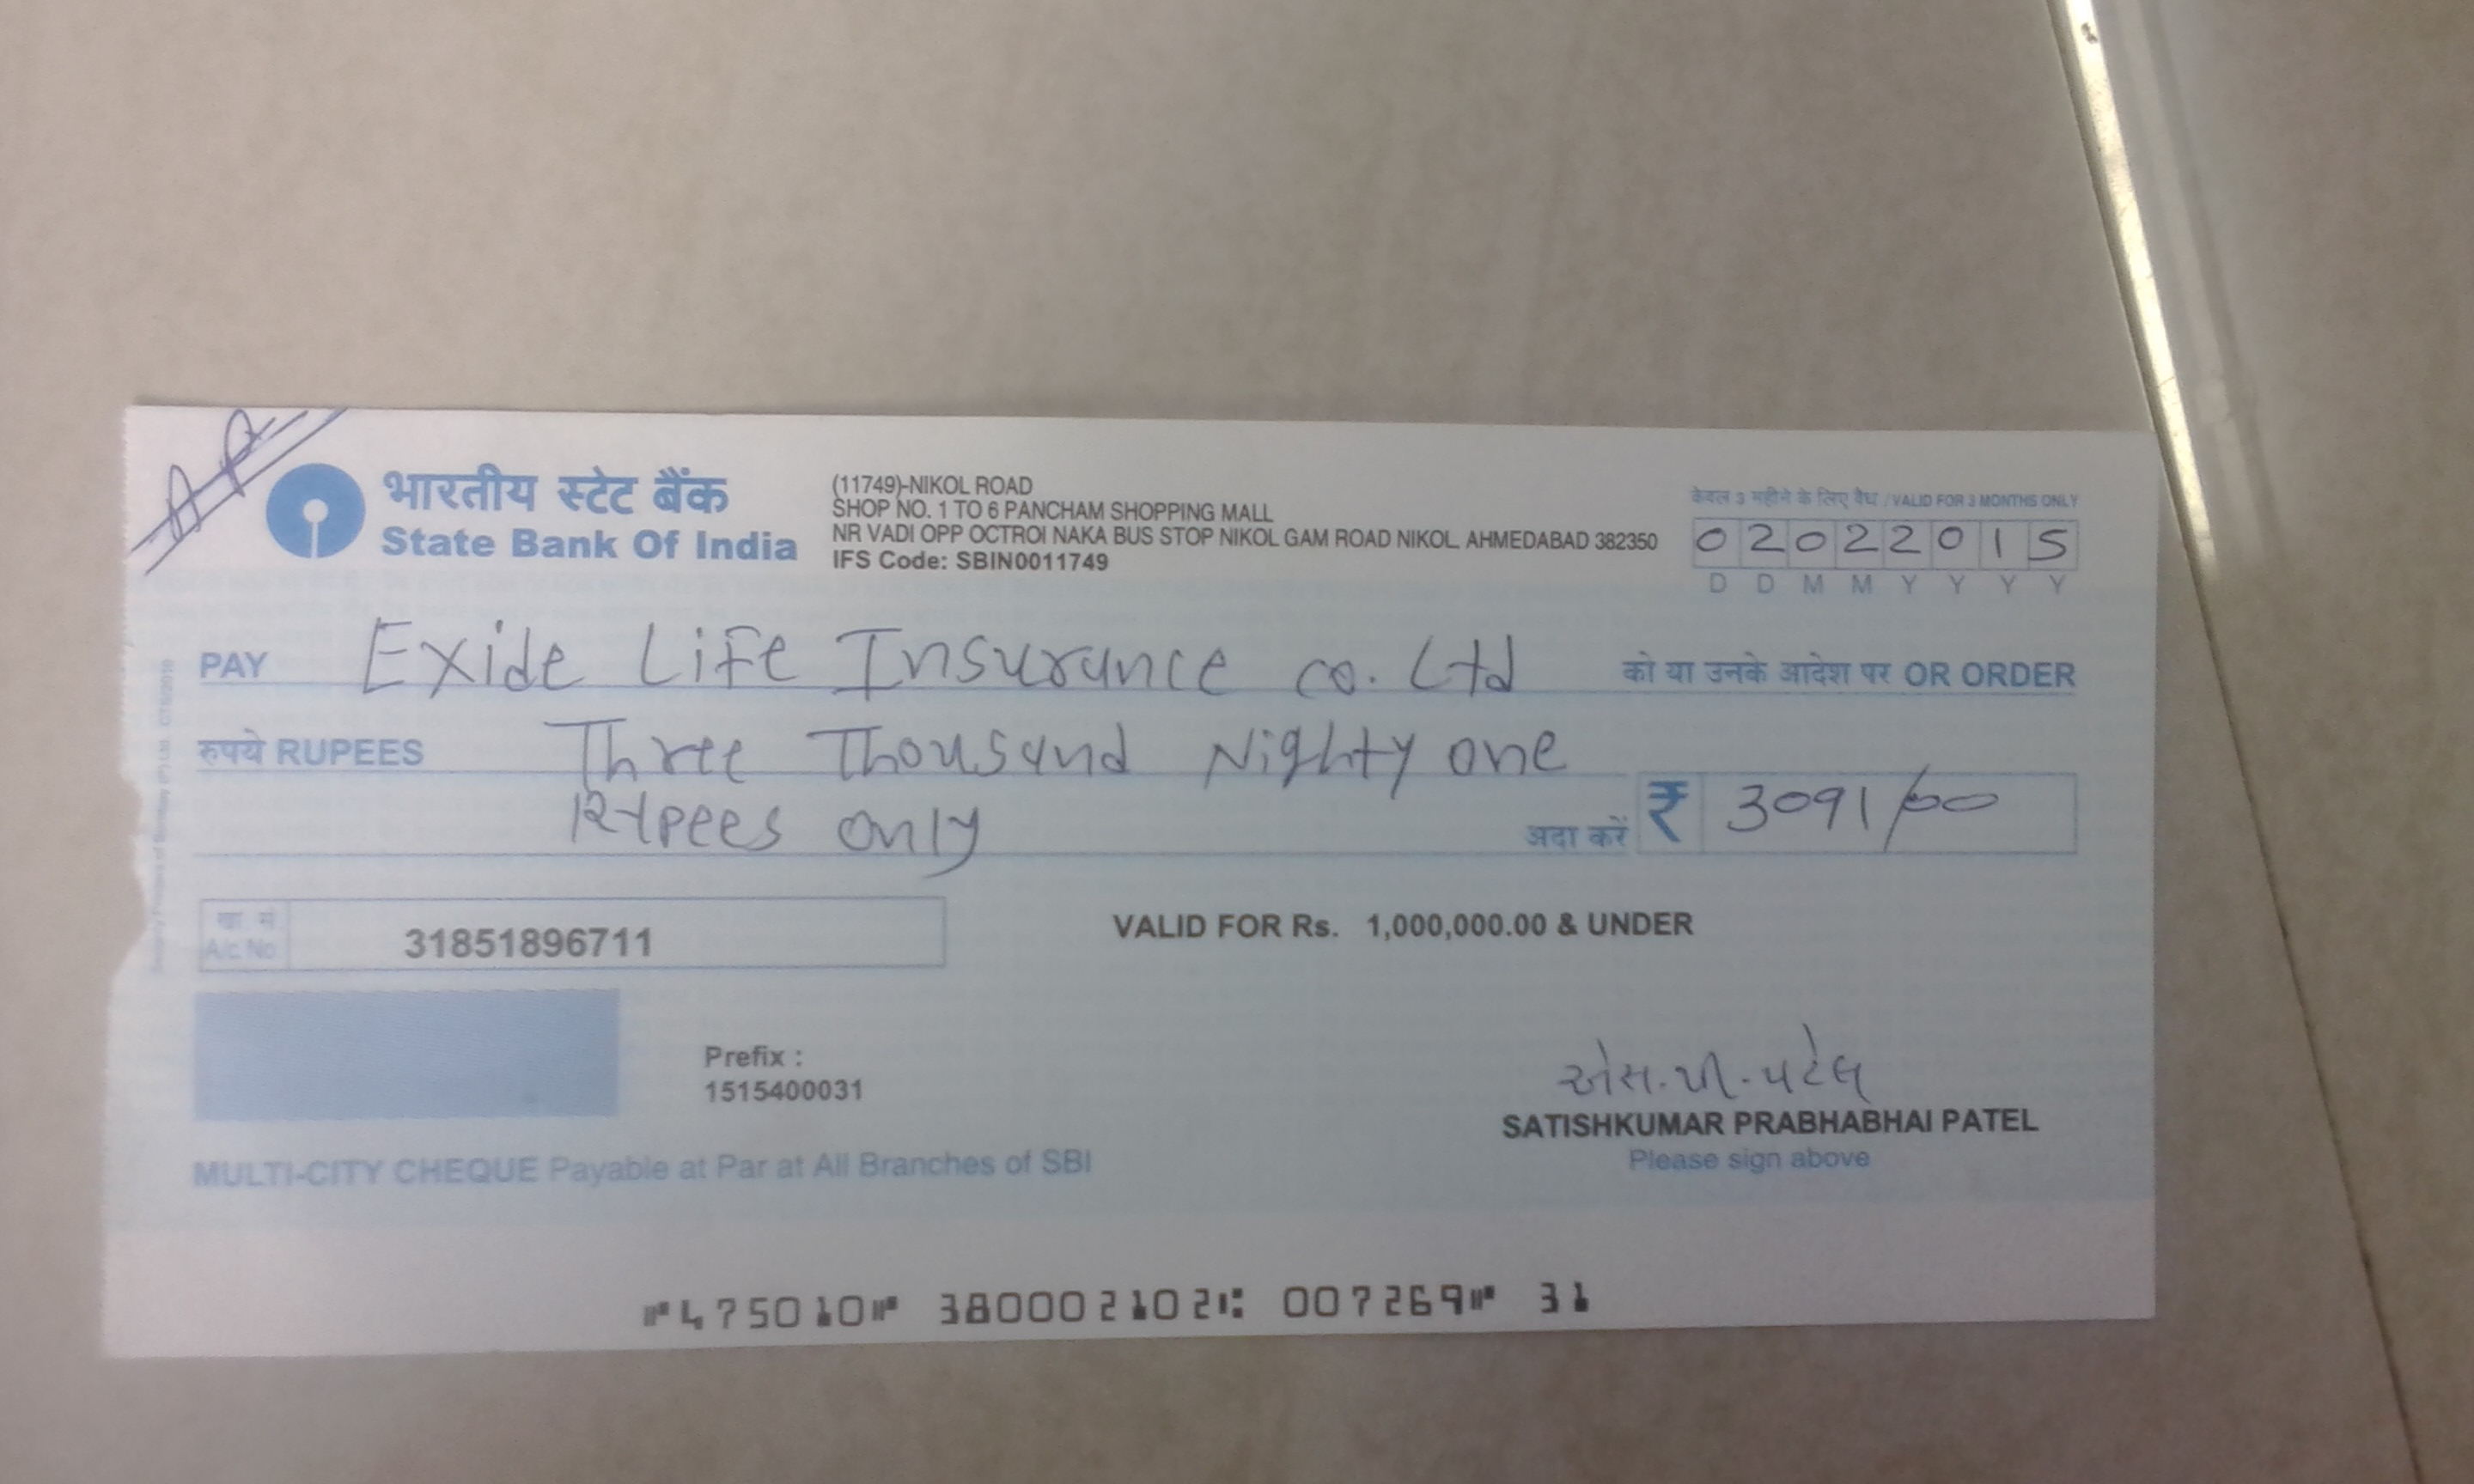 A P
भारतीय स्टेट बैंक
State Bank Of India
(11749)-NIKOL ROAD
SHOP NO. 1 TO 6 PANCHAM SHOPPING MALL
NR VADI OPP OCTROI NAKA BUS STOP NIKOL GAM ROAD NIKOL, AHMEDABAD 382350
IFS Code: SBIN0011749
केवल 3 महीने के लिए वैध / VALID FOR 3 MONTHS ONLY
0 2 0 2 2 0 1 5
D D M M Y Y Y Y
PAY Exide Life Insurance co. Ltd को या उनके आदेश पर OR ORDER
रुपये RUPEES Three Thousand Nighty one
Rupees only अदा करें ₹ 3091/00
खा सं
A/c No 31851896711
VALID FOR Rs. 1,000,000.00 & UNDER
Prefix :
1515400031
એસ.પી.પટેલ
SATISHKUMAR PRABHABHAI PATEL
Please sign above
MULTI-CITY CHEQUE Payable at Par at All Branches of SBI
⑈475010⑈ 380002102⑆ 007269⑈ 31